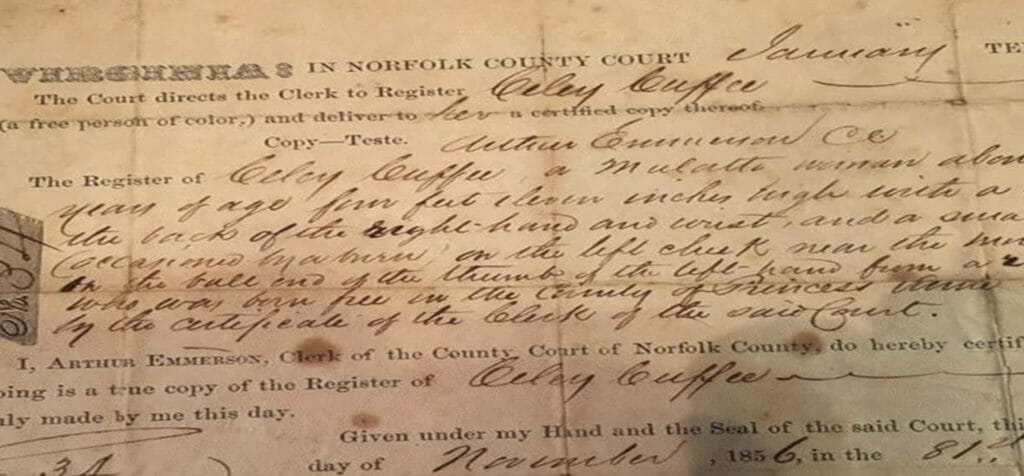 VIRGINIA: IN NORFOLK COUNTY COURT January TE
The Court directs the Clerk to Register Celey Cuffee
(a free person of color,) and deliver to her a certified copy thereof.
Copy—Teste. Arthur Emmerson CC
The Register of Celey Cuffee, a Mulatto woman abou
years of age four feet eleven inches high with a
the back of the right hand and wrist, and a sma
occasioned by a burn, on the left cheek near the mo
on the ball end of the thumb of the left hand from a
who was born free in the County of Princess Anne
by the certificate of the Clerk of the said Court.
I, ARTHUR EMMERSON, Clerk of the County Court of Norfolk County, do hereby certif
oing is a true copy of the Register of Celey Cuffee
uly made by me this day.
Given under my Hand and the Seal of the said Court, thi
day of November, 1856, in the 81st